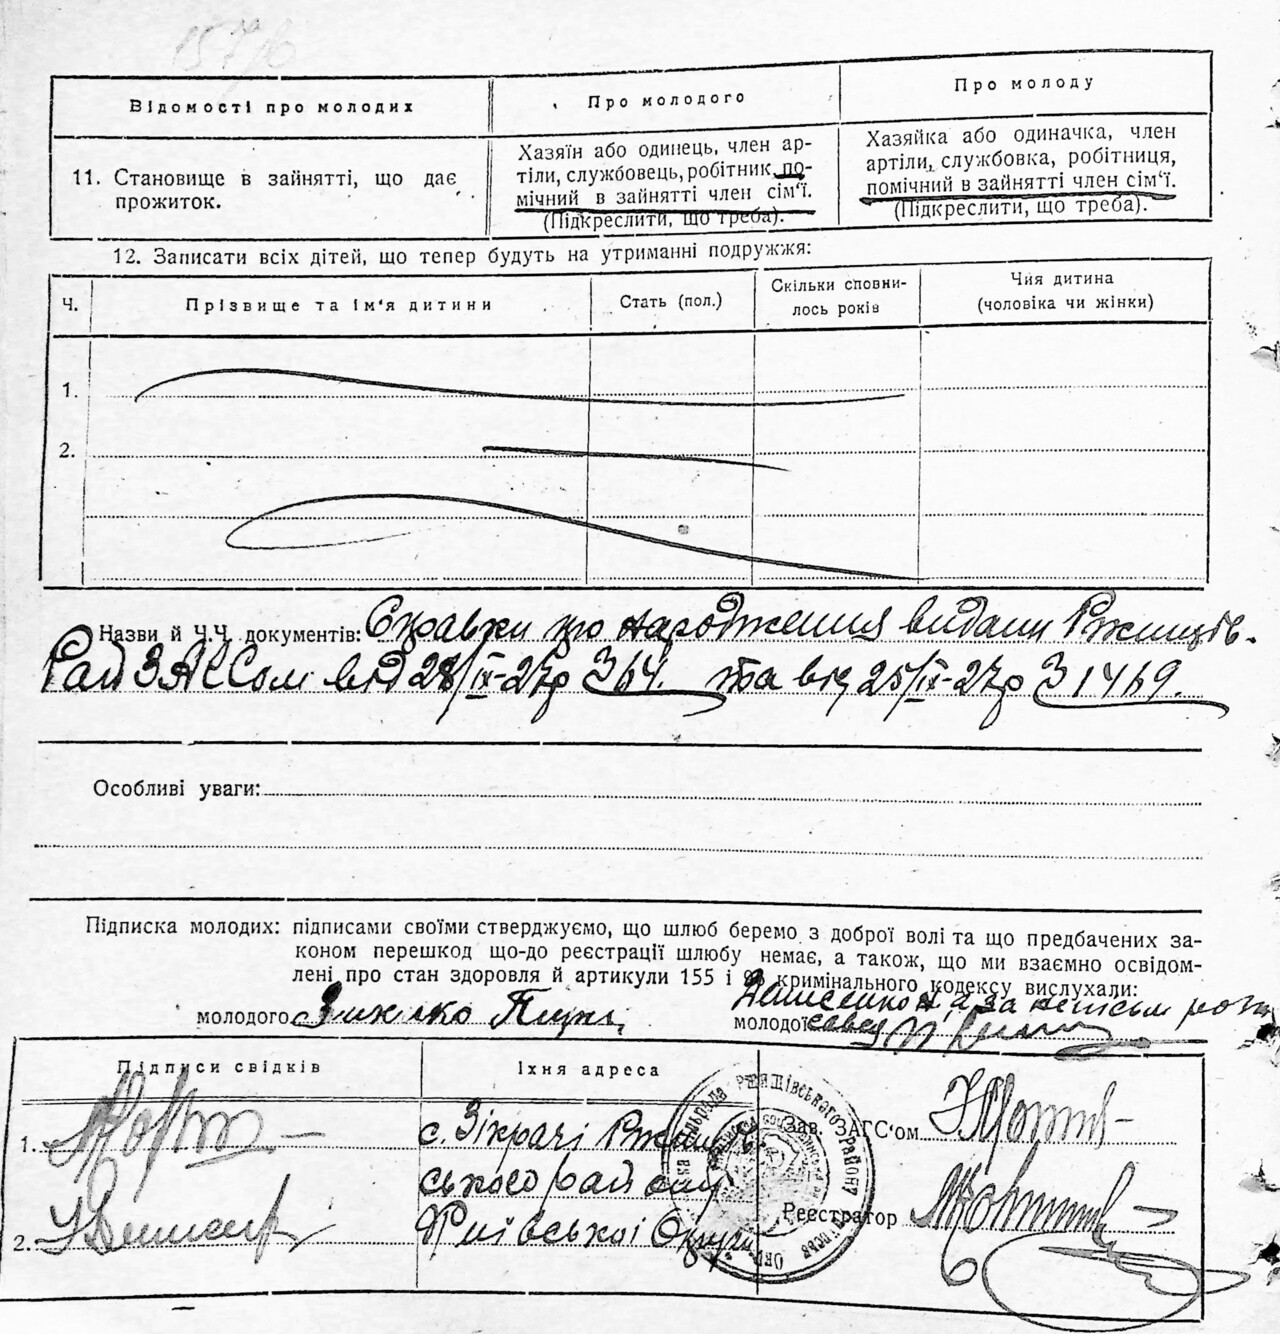 157 зв
Відомості про молодих
Про молодого
Про молоду
11. Становище в зайнятті, що дає
прожиток.
Хазяїн або одинець, член ар-
тіли, службовець, робітник, по-
мічний в зайнятті член сім'ї.
(Підкреслити, що треба).
Хазяйка або одиначка, член
артіли, службовка, робітниця,
помічний в зайнятті член сім'ї.
(Підкреслити, що треба).
12. Записати всіх дітей, що тепер будуть на утриманні подружжя:
Ч.
Прізвище та ім'я дитини
Стать (пол.)
Скільки сповни-
лось років
Чия дитина
(чоловіка чи жінки)
1.
2.
Назви й Ч.Ч. документів: Справки про народження видани Ржищів.
Рай ЗАГСом від 28/IX-27р З 64. та від 25/IX-27р З 1469.
Особливі уваги:
Підписка молодих: підписами своїми стверджуємо, що шлюб беремо з доброї волі та що предбачених за-
коном перешкод що-до реєстрації шлюбу немає, а також, що ми взаємно освідом-
лені про стан здоровля й артикули 155 і кримінального кодексу вислухали:
молодого
молодої
за
Підписи свідків
Їхня адреса
1.
с. Зікрачі Ржищів
ського району
2.
Київської Округи
Зав. ЗАГС'ом
Реєстратор
Ржищівського Району